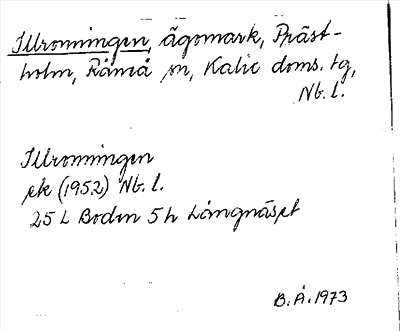 Illromningen, ägomark, Präst-
holm, Råneå sn, Kalix doms. tg,
Nb. l.
Illromningen
ek (1952) Nb. l.
25 L Boden 5 h Långnäset
B. Å. 1973